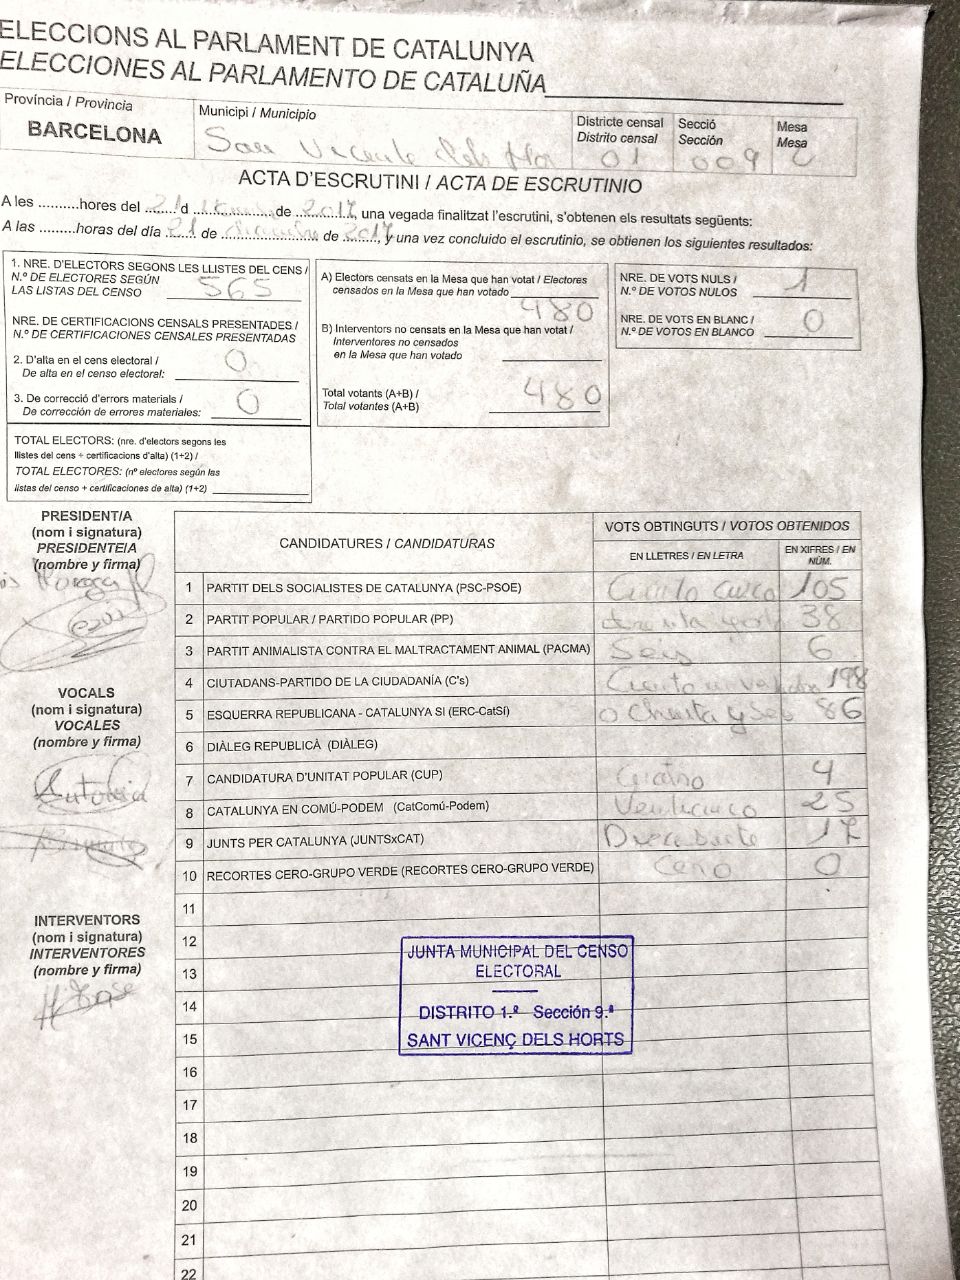 ELECCIONS AL PARLAMENT DE CATALUNYA
ELECCIONES AL PARLAMENTO DE CATALUÑA
Província / Provincia
BARCELONA
Municipi / Municipio
San Vicente dels Hor
Districte censal
Distrito censal
01
Secció
Sección
009
Mesa
Mesa
ACTA D'ESCRUTINI / ACTA DE ESCRUTINIO
A les ..........hores del 21 d ........ de 2017, una vegada finalitzat l'escrutini, s'obtenen els resultats següents:
A las .........horas del día 21 de diciembre de 2017, y una vez concluido el escrutinio, se obtienen los siguientes resultados:
1. NRE. D'ELECTORS SEGONS LES LLISTES DEL CENS /
N.º DE ELECTORES SEGÚN
LAS LISTAS DEL CENSO 565
NRE. DE CERTIFICACIONS CENSALS PRESENTADES /
N.º DE CERTIFICACIONES CENSALES PRESENTADAS
2. D'alta en el cens electoral /
De alta en el censo electoral: 0
3. De correcció d'errors materials /
De corrección de errores materiales: 0
TOTAL ELECTORS: (nre. d'electors segons les
llistes del cens + certificacions d'alta) (1+2) /
TOTAL ELECTORES: (nº electores según las
listas del censo + certificaciones de alta) (1+2)
A) Electors censats en la Mesa que han votat / Electores
censados en la Mesa que han votado 480
B) Interventors no censats en la Mesa que han votat /
Interventores no censados
en la Mesa que han votado
Total votants (A+B) /
Total votantes (A+B) 480
NRE. DE VOTS NULS /
N.º DE VOTOS NULOS 1
NRE. DE VOTS EN BLANC /
N.º DE VOTOS EN BLANCO 0
PRESIDENT/A
(nom i signatura)
PRESIDENTE/A
(nombre y firma)
VOCALS
(nom i signatura)
VOCALES
(nombre y firma)
Antonia
INTERVENTORS
(nom i signatura)
INTERVENTORES
(nombre y firma)
CANDIDATURES / CANDIDATURAS
VOTS OBTINGUTS / VOTOS OBTENIDOS
EN LLETRES / EN LETRA
EN XIFRES / EN NÚM.
1 PARTIT DELS SOCIALISTES DE CATALUNYA (PSC-PSOE) Ciento cinco 105
2 PARTIT POPULAR / PARTIDO POPULAR (PP) treinta y ocho 38
3 PARTIT ANIMALISTA CONTRA EL MALTRACTAMENT ANIMAL (PACMA) Seis 6
4 CIUTADANS-PARTIDO DE LA CIUDADANÍA (C's) Ciento 198
5 ESQUERRA REPUBLICANA - CATALUNYA SI (ERC-CatSí) Ochenta y Seis 86
6 DIÀLEG REPUBLICÀ (DIÀLEG)
7 CANDIDATURA D'UNITAT POPULAR (CUP) Cuatro 4
8 CATALUNYA EN COMÚ-PODEM (CatComú-Podem) Venticinco 25
9 JUNTS PER CATALUNYA (JUNTSxCAT) 17
10 RECORTES CERO-GRUPO VERDE (RECORTES CERO-GRUPO VERDE) Cero 0
11
12
13
14
15
16
17
18
19
20
21
22
JUNTA MUNICIPAL DEL CENSO
ELECTORAL
DISTRITO 1.º Sección 9.ª
SANT VICENÇ DELS HORTS